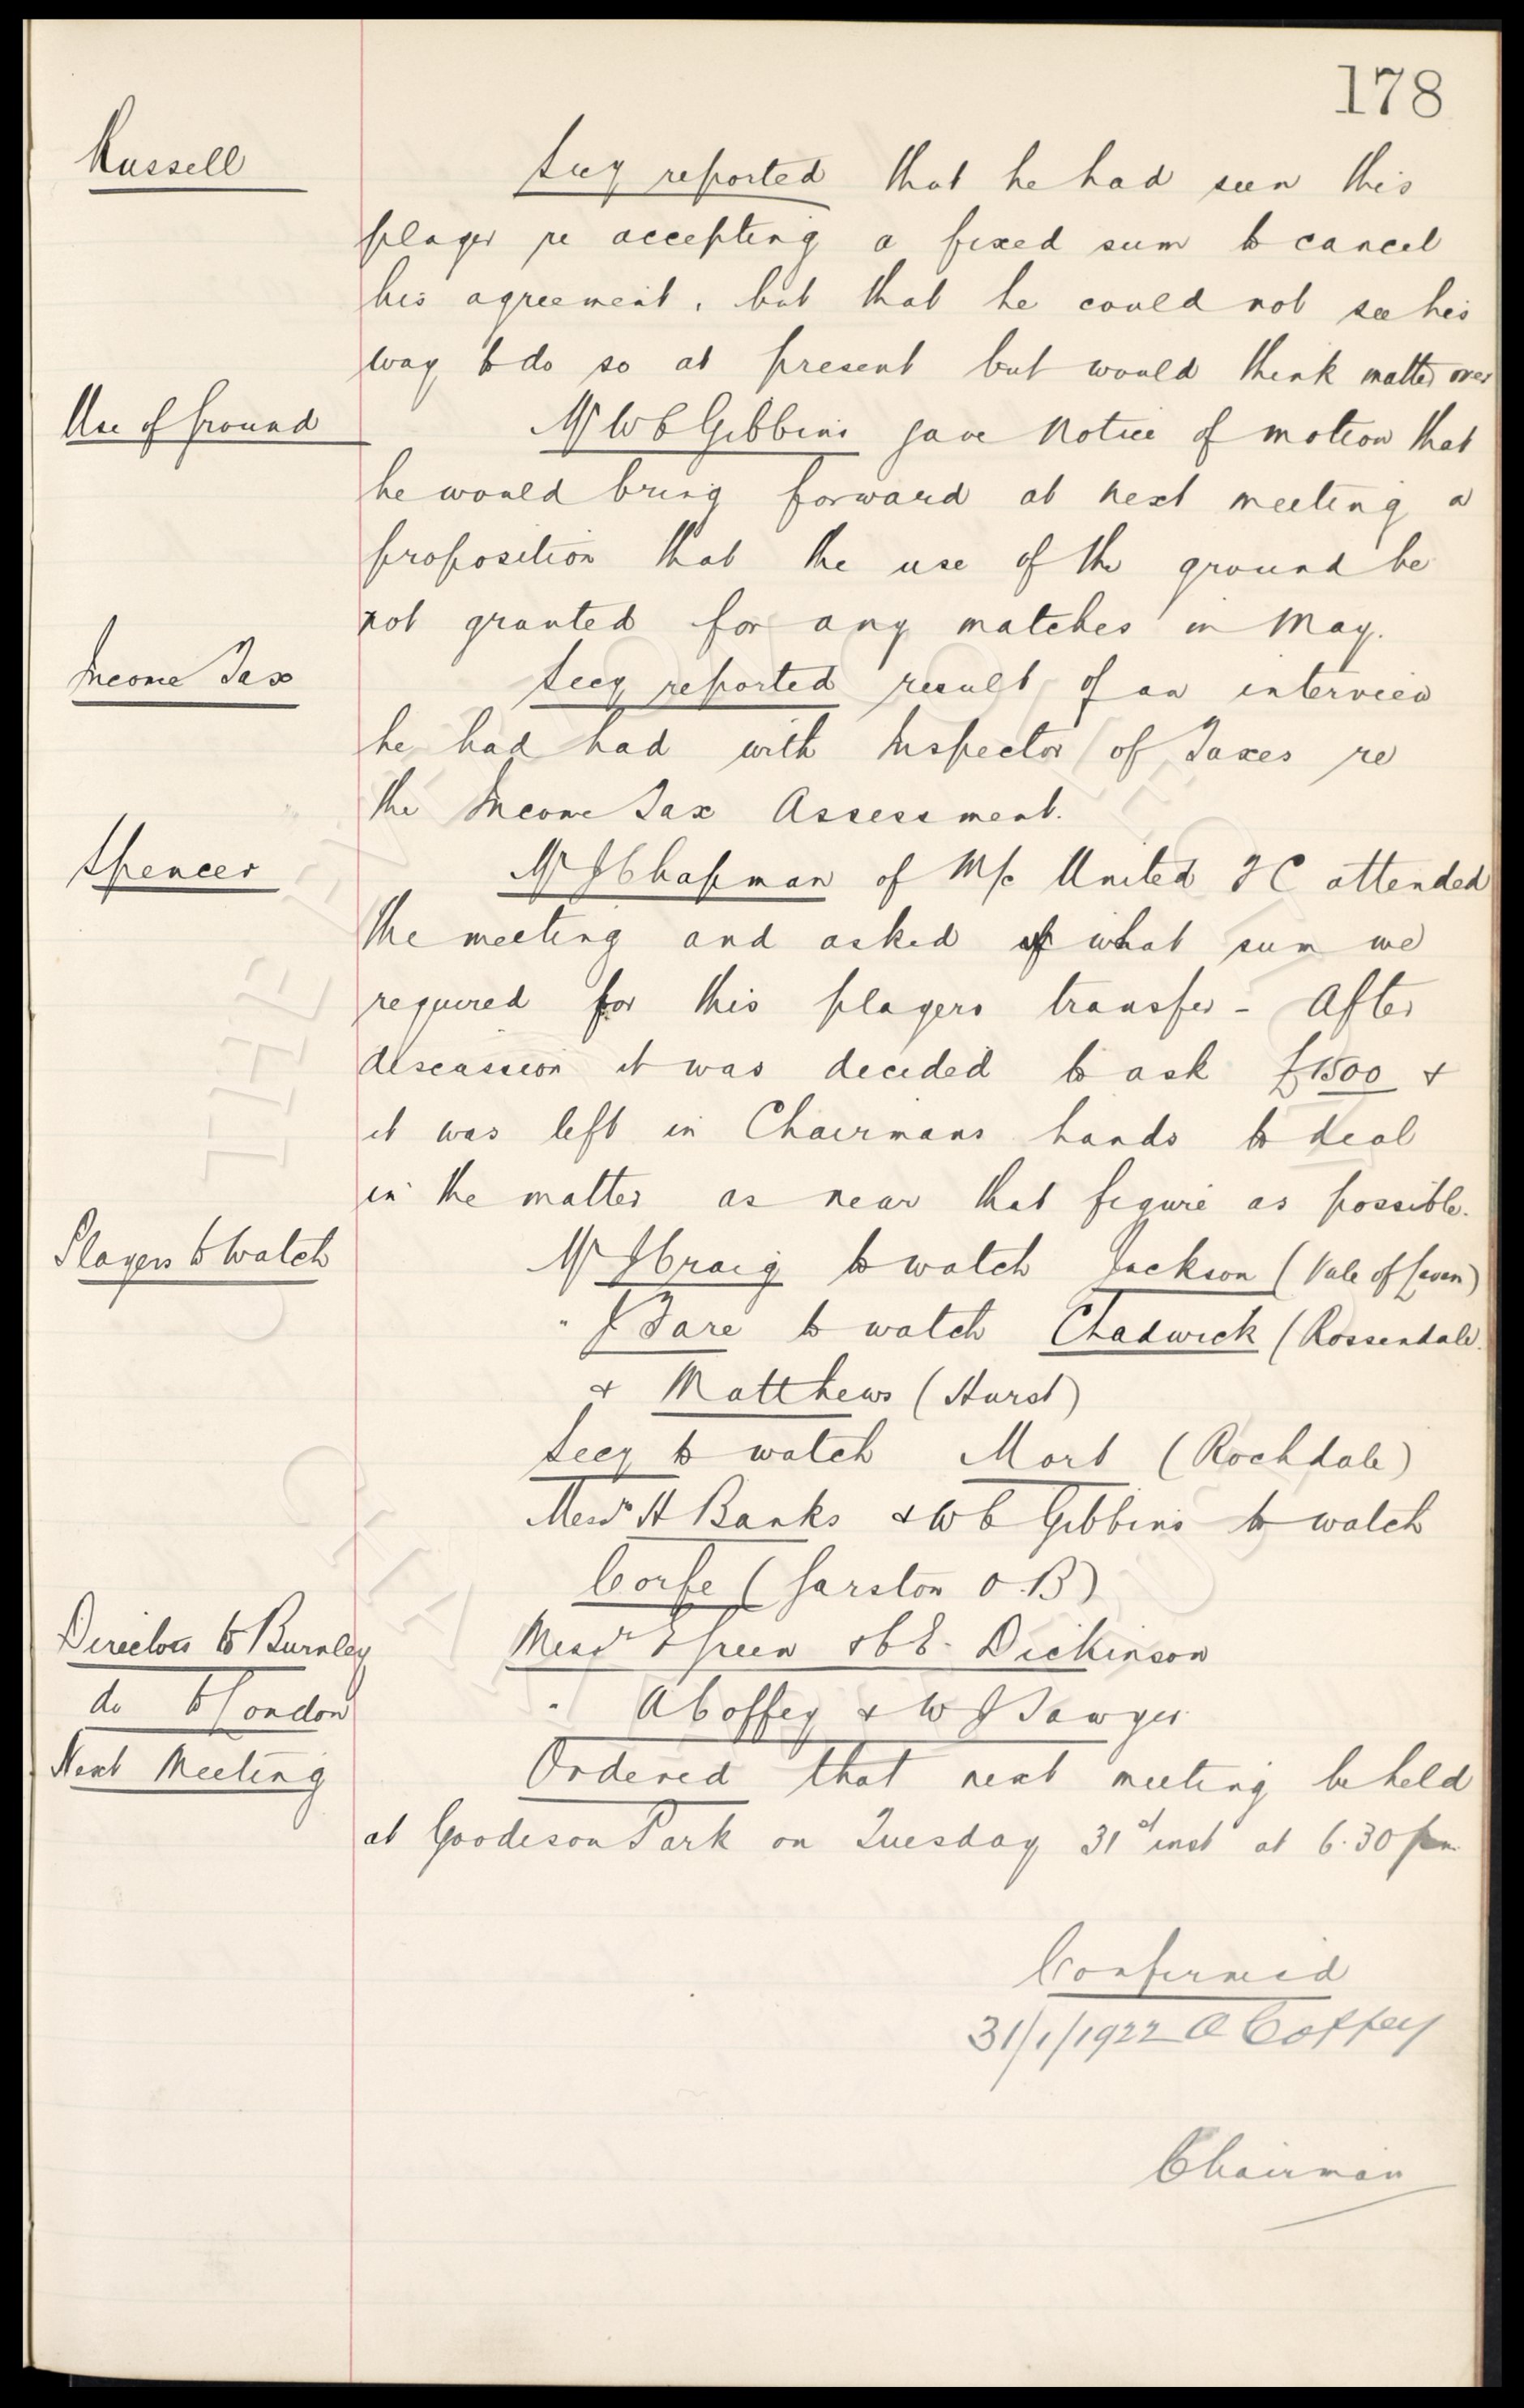 178
Russell
Secy reported that he had seen this
player re accepting a fixed sum to cancel
his agreement, but that he could not see his
way to do so at present but would think matter over
Use of Ground
Mr W C Gibbins gave notice of motion that
he would bring forward at next meeting a
proposition that the use of the ground be
not granted for any matches in May.
Income Tax
Secy reported result of an interview
he had had with Inspector of Taxes re
the Income Tax Assessment.
Spencer
Mr J Chapman of M/c United F C attended
the meeting and asked what sum we
required for this players transfer - After
discussion it was decided to ask £1500 &
it was left in Chairmans hands to deal
in the matter as near that figure as possible.
Players to Watch
Mr J Craig to watch Jackson (Vale of Leven)
" J Fare to watch Chadwick (Rossendale)
& Matthews (Hurst)
Secy to watch Mort (Rochdale)
Messrs H Banks & W C Gibbins to watch
Corfe (Garston O.B)
Directors to Burnley
Messrs E Green & C E. Dickinson
do to London
" A Coffey & W J Sawyer
Next Meeting
Ordered that next meeting be held
at Goodison Park on Tuesday 31st inst at 6.30 pm
Confirmed
31/1/1922 A Coffey
Chairman